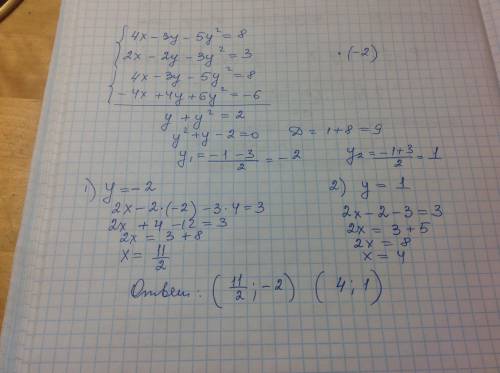 4x - 3y - 5y² = 8
2x - 2y - 3y² = 3 · (-2)
4x - 3y - 5y² = 8
-4x + 4y + 6y² = -6
y + y² = 2
y² + y - 2 = 0 D = 1 + 8 = 9
y₁ = (-1 - 3)/2 = -2 y₂ = (-1 + 3)/2 = 1
1) y = -2
2x - 2·(-2) - 3·4 = 3
2x + 4 - 12 = 3
2x = 3 + 8
x = 11/2
2) y = 1
2x - 2 - 3 = 3
2x = 3 + 5
2x = 8
x = 4
Ответ: (11/2; -2) (4; 1)